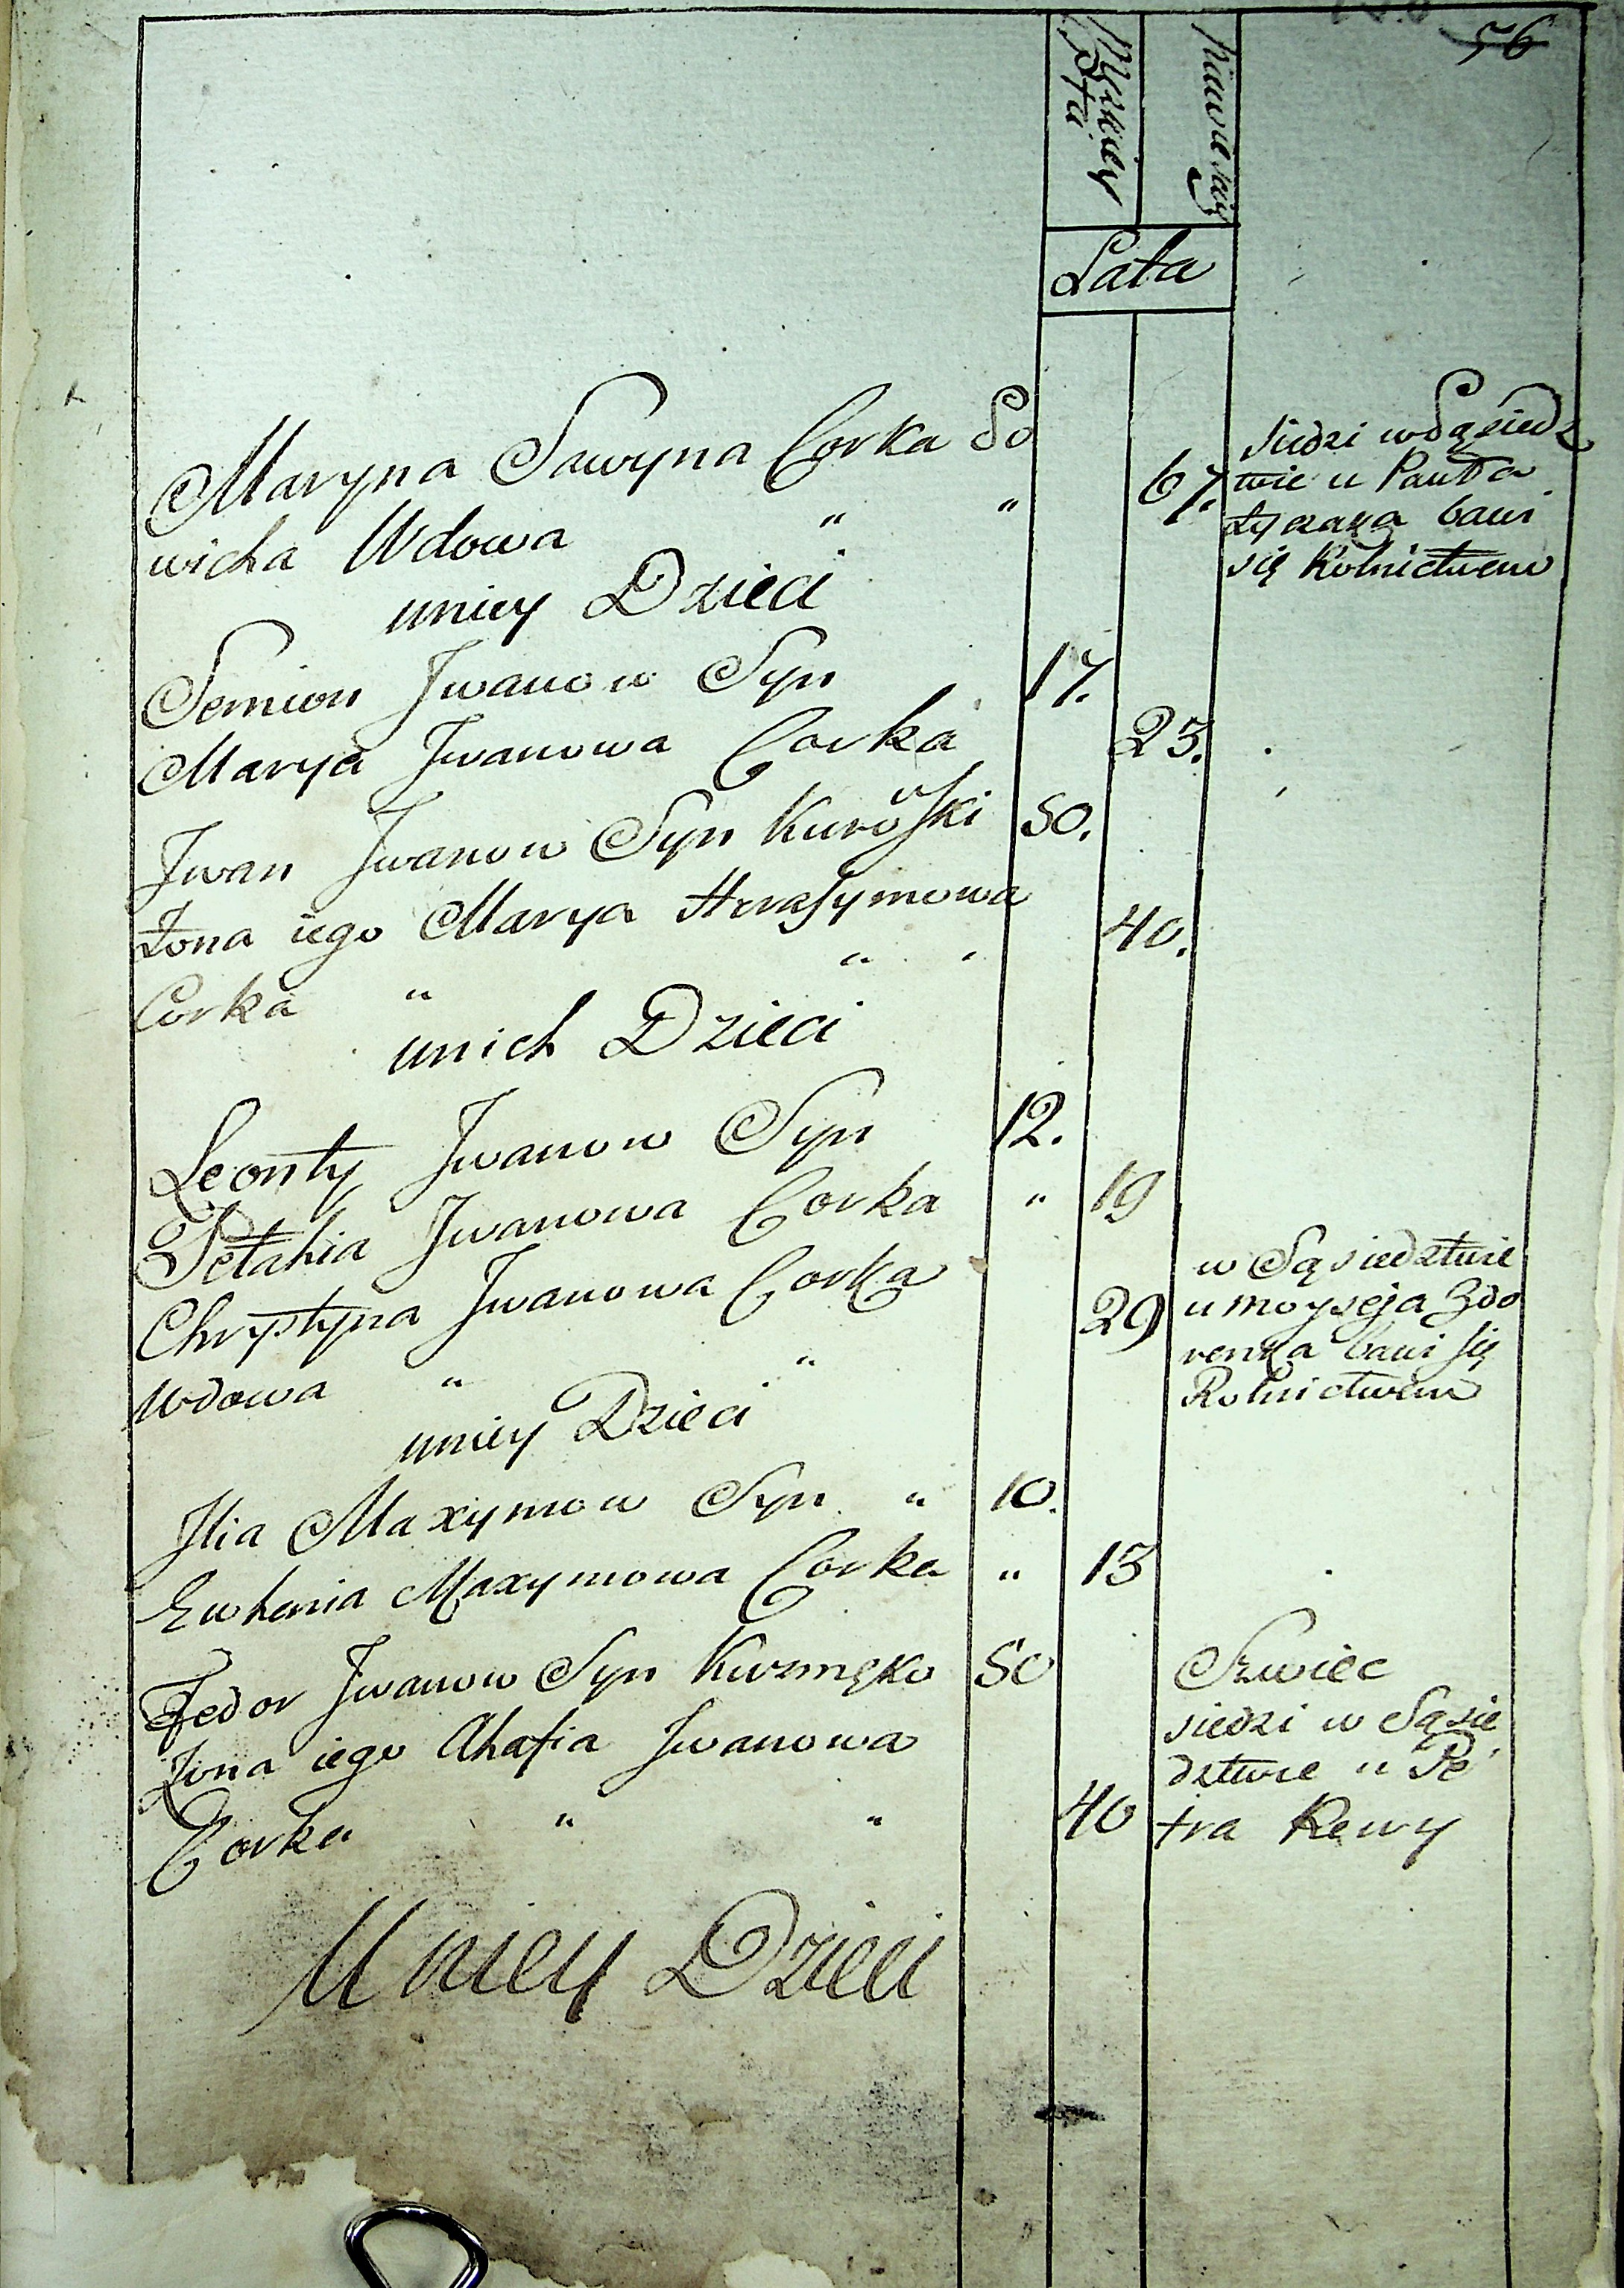 56
Męskiey
Płci
Niewieskiey
Lata
Maryna Sawyna Corka So
wicha Wdowa " " 67.
siedzi w Sąsiedz
twie u Pawła
bawi
się Rolnictwem
uniey Dzieci
Semion Jwanow Syn 17.
Marya Jwanowa Corka 23.
Jwan Jwanow Syn Kurowski 50.
Zona iego Marya Herasymowa
Corka " " " 40.
unich Dzieci
Leonty Jwanow Syn 12.
Pelahia Jwanowa Corka " 19
Chrystyna Jwanowa Corka
Wdowa " " 29
w Sąsiedztwie
u Moyseja Zdo
renka bawi się
Rolnictwem
uniey Dzieci
Ilia Maxymow Syn " 10.
Ewhenia Maxymowa Corka " 13
Fedor Jwanow Syn Kuzmęko 50
Zona iego Ahafia Jwanowa
Corka " " 40
Szwiec
siedzi w Sąsie
dztwie u Pe
tra Rewy
Uniey Dzieci